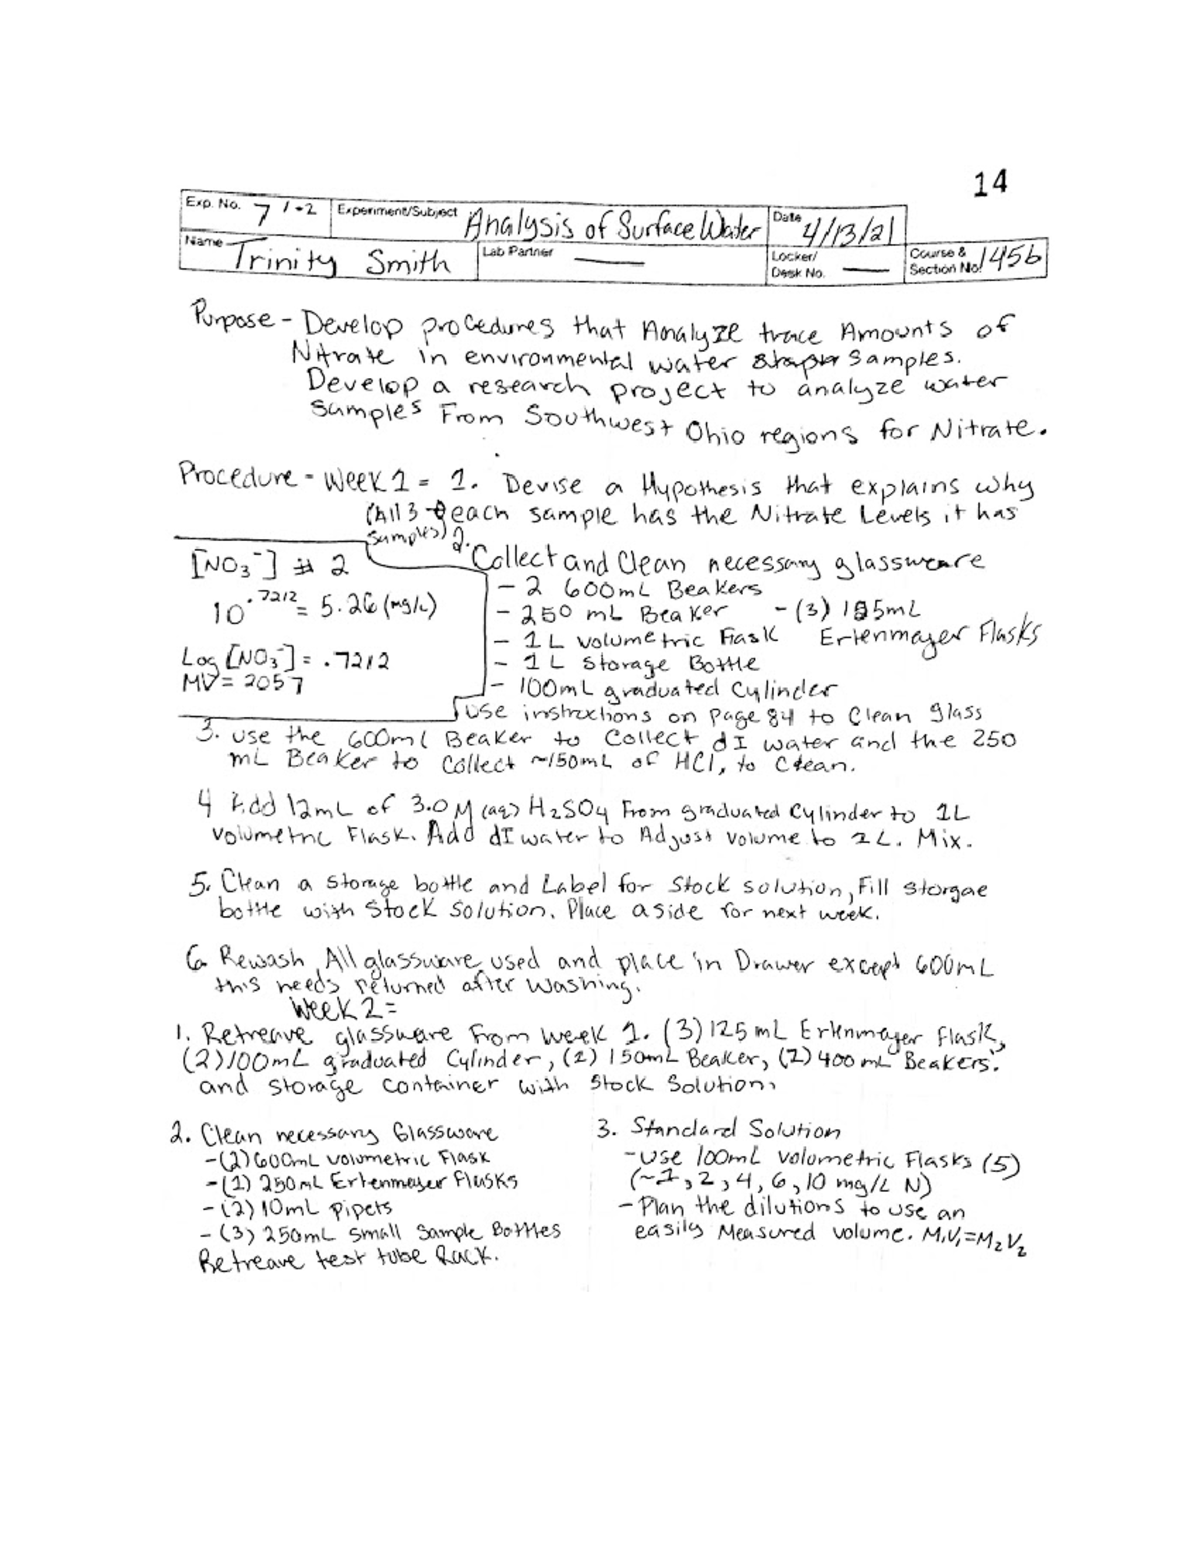 14
Exp. No. 7 1+2 Experiment/Subject Analysis of Surface Water Date 4/13/21
Name Trinity Smith Lab Partner — Locker/ Desk No. — Course & Section No. 1456
Purpose - Develop procedures that Analyze trace Amounts of
Nitrate in environmental water samples.
Develop a research project to analyze water
samples From Southwest Ohio regions for Nitrate.
Procedure - Week 1 = 1. Devise a Hypothesis that explains why
(All 3 each sample has the Nitrate Levels it has
samples)
2. Collect and Clean necessary glassware
- 2 600mL Beakers
- 250 mL Beaker - (3) 125mL
- 1L volumetric Flask Erlenmayer Flasks
- 1L Storage Bottle
- 100mL graduated Cylinder
Use instructions on page 84 to Clean glass
[NO3-] # 2
10^.7212 = 5.26 (mg/L)
Log [NO3-] = .7212
MV = 2057
3. Use the 600ml Beaker to Collect dI water and the 250
mL Beaker to Collect ~150mL of HCl, to Clean.
4 Add 12mL of 3.0 M (aq) H2SO4 From graduated Cylinder to 1L
volumetric Flask. Add dI water to Adjust volume to 1L. Mix.
5. Clean a storage bottle and Label for Stock solution, Fill storgae
bottle with Stock Solution. Place aside for next week.
6. Rewash All glassware used and place in Drawer except 600mL
this needs returned after washing.
Week 2 =
1. Retreave glassware From week 1. (3) 125 mL Erlenmayer Flask,
(2) 100mL graduated Cylinder, (2) 150mL Beaker, (2) 400 mL Beakers.
and storage container with Stock Solution.
2. Clean necessary Glassware
- (2) 600mL volumetric Flask
- (1) 250mL Erlenmayer Flasks
- (2) 10mL pipets
- (3) 250mL small Sample Bottles
Retreave test tube Rack.
3. Standard Solution
- Use 100mL volumetric Flasks (5)
(~1, 2, 4, 6, 10 mg/L N)
- Plan the dilutions to use an
easily Measured volume. M1V1=M2V2